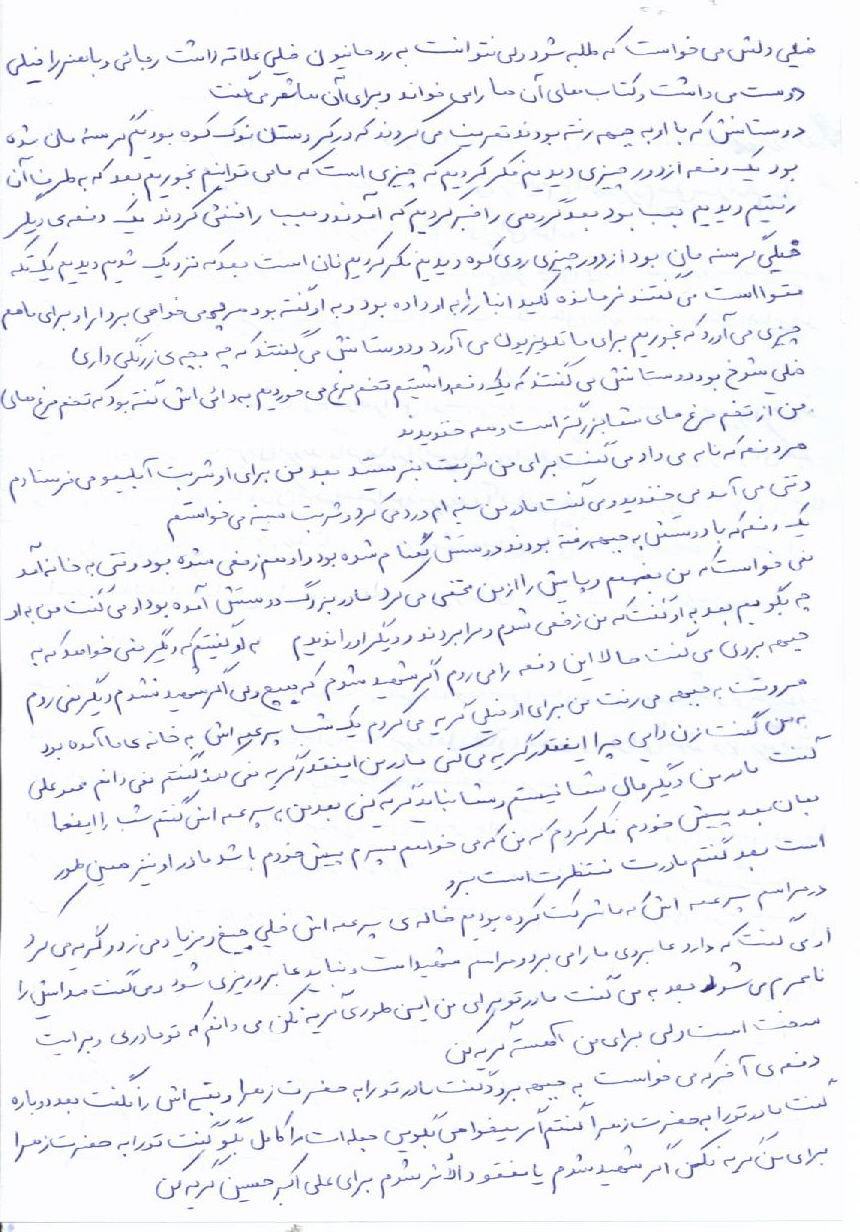 خیلی دلش می خواست که طلبه شود ولی نتوانست به روحانیون خیلی علاقه داشت رجائی و باهنر را خیلی
دوست می داشت و کتاب های آن ها را می خواند و برای آن ها شعر می گفت
دوستانش که با او به جبهه رفته بودند تعریف می کردند که در کردستان نوک کوه بودیم گرسنه مان شده
بود یک دفعه از دور چیزی دیدیم فکر کردیم که چیزی است که ما می توانیم بخوریم بعد که به طرف آن
رفتیم دیدیم بمب بود بعد گروهی را خبر کردیم که آمدند و بمب را خنثی کردند یک دفعه ی دیگر
خیلی گرسنه مان بود از دور چیزی روی کوه دیدیم فکر کردیم نان است بعد که نزدیک شدیم دیدیم یک تکه
مقوا است می گفتند فرمانده کلید انبار را به او داده بود و به او گفته بود هر چه می خواهی بردار او برای ما هم
چیزی می آورد که بخوریم برای ما تلویزیون می آورد و دوستانش می گفتند که چه بچه ی زرنگی داری
خیلی شوخ بود دوستانش می گفتند که یک دفعه داشتیم تخم مرغ می خوردیم به دائی اش گفته بود که تخم مرغ های
من از تخم مرغ های شما بزرگتر است و همه خندیدند
هر دفعه که نامه می داد می گفت برای من شربت بفرستید بعد من برای او شربت آبلیمو می فرستادم
وقتی می آمد می خندید و می گفت مادر من سینه ام درد می کرد و شربت سینه می خواستم
یک دفعه که با دوستش به جبهه رفته بودند دوستش گمنام شده بود و او هم زخمی شده بود وقتی به خانه آمد
نمی خواست که من بفهمم و پایش را از من مخفی می کرد مادر بزرگ دوستش آمده بود او می گفت من به او
چه بگویم بعد به او گفت که من زخمی شدم و مرا بردند و دیگر او را ندیدم به او گفتیم که دیگر نمی خواهد که به
جبهه بروی می گفت حالا این دفعه را می روم اگر شهید شدم که هیچ ولی اگر شهید نشدم دیگر نمی روم
هر وقت به جبهه می رفت من برای او خیلی گریه می کردم یک شب پسر عمه اش به خانه ی ما آمده بود
به من گفت زن دایی چرا اینقدر گریه می کنی مادر من اینقدر گریه نمی کند گفتم نمی دانم محمد علی
گفت مادر من دیگر مال شما نیستم و شما نباید گریه کنی بعد من به پسر عمه اش گفتم شب را اینجا
بمان بعد پیش خودم فکر کردم که من که می خواهم پسرم پیش خودم باشد مادر او نیز همین طور
است بعد گفتم مادرت منتظرت است برو
در مراسم پسر عمه اش که ما شرکت کرده بودیم خاله ی پسر عمه اش خیلی جیغ و فریاد می زد و گریه می کرد
او می گفت که دارد عابروی ما را می برد و مراسم شهید است و نباید عابروریزی شود و می گفت صدایش را
نامحرم می شنود بعد به من گفت مادر تو برای من این طوری گریه نکن می دانم که تو مادری و برایت
سخت است ولی برای من آهسته گریه کن
دفعه ی آخر که می خواست به جبهه برود گفت مادر تو را به حضرت زهرا و بقیه اش را نگفت بعد دوباره
گفت مادر تو را به حضرت زهرا گفتم اگر میخواهی بگویی جمله ات را کامل بگو گفت تو را به حضرت زهرا
برای من گریه نکن اگر شهید شدم یا مفقود الأثر شدم برای علی اکبر حسین گریه کن